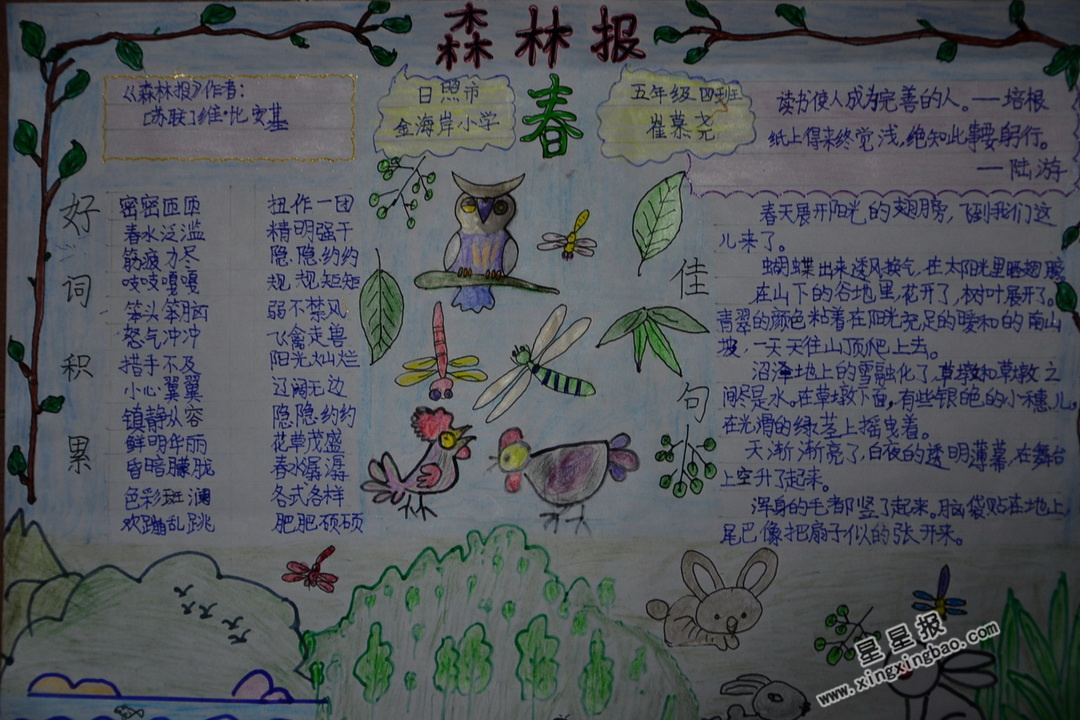 森林报
春
《森林报》作者：
[苏联]维·比安基
日照市
金海岸小学
五年级四班
崔慕尧
读书使人成为完善的人。——培根
纸上得来终觉浅，绝知此事要躬行。
——陆游
好词积累
密密匝匝 扭作一团
春水泛滥 精明强干
筋疲力尽 隐隐约约
吱吱嘎嘎 规规矩矩
笨头笨脑 弱不禁风
怒气冲冲 飞禽走兽
措手不及 阳光灿烂
小心翼翼 辽阔无边
镇静从容 隐隐约约
鲜明华丽 花草茂盛
昏暗朦胧 春水潺潺
色彩斑澜 各式各样
欢蹦乱跳 肥肥硕硕
佳句
春天展开阳光的翅膀，飞到我们这
儿来了。
蝴蝶出来透风换气，在太阳光里晒翅膀
在山下的谷地里，花开了，树叶展开了。
青翠的颜色粘着在阳光充足的暖和的南山
坡，一天天往山顶爬上去。
沼泽地上的雪融化了，草墩和草墩之
间尽是水。在草墩下面，有些银色的小穗儿，
在光滑的绿茎上摇曳着。
天渐渐亮了，白夜的透明薄幕，在舞台
上空升了起来。
浑身的毛都竖了起来。脑袋贴在地上，
尾巴像把扇子似的张开来。
星星报
www.xingxingbao.com